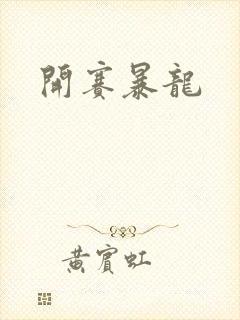 開賽暴龍
黃賓虹